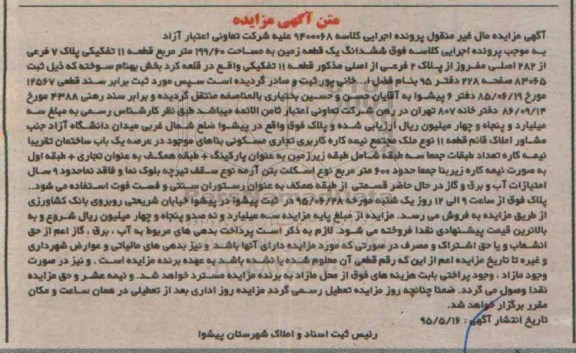 متن آگهی مزایده
آگهی مزایده مال غیر منقول پرونده اجرایی کلاسه ۹۴۰۰۰۶۸ علیه شرکت تعاونی اعتبار آزاد
به موجب پرونده اجرایی کلاسه فوق ششدانگ یک قطعه زمین به مساحت ۱۹۹/۶۰ متر مربع قطعه ۱۱ تفکیکی پلاک ۷ فرعی
از ۲۸۲ اصلی مفروز از پلاک ۲ فرعی از اصلی مذکور قطعه ۱۱ تفکیکی واقع در قلعه کرد بخش بهنام سوخته که ذیل ثبت
۸۳۰۶۵ صفحه ۲۲۸ دفتر ۹۵ بنام فضل ا...خانی پور ثبت و صادر گردیده است سپس مورد ثبت برابر سند قطعی ۱۴۵۶۷
مورخ ۸۵/۰۶/۱۹ دفتر ۶ پیشوا به آقایان حسن و حسین بختیاری بالمناصفه منتقل گردیده و برابر سند رهنی ۴۳۸۸ مورخ
۸۶/۰۹/۱۴ دفتر خانه ۸۰۷ تهران در رهن شرکت تعاونی اعتبار ثامن الائمه میباشد طبق نظر کارشناس رسمی به مبلغ سه
میلیارد و پنجاه و چهار میلیون ریال ارزیابی شده و پلاک فوق واقع در پیشوا ضلع شمال غربی میدان دانشگاه آزاد جنب
مشاور املاک قائم قطعه ۱۱ نوع ملک مجتمع نیمه کاره کاربری تجاری مسکونی بناهای موجود در عرصه یک باب ساختمان تقریبا
نیمه کاره تعداد طبقات جمعا سه طبقه شامل طبقه زیرزمین به عنوان پارکینگ + طبقه همکف به عنوان تجاری + طبقه اول
به صورت نیمه کاره زیربنا جمعا حدود ۶۰۰ متر مربع نوع اسکلت بتن آرمه نوع سقف تیرچه بلوک نما و فاقد نماحدود ۹ سال
امتیازات آب و برق و گاز در حال حاضر قسمتی از طبقه همکف به عنوان رستوران سنتی و فست فوت استفاده می شود..
پلاک فوق از ساعت ۹ الی ۱۲ روز یک شنبه مورخه ۹۵/۰۶/۲۸ در ثبت پیشوا در پیشوا خیابان شریعتی روبروی بانک کشاورزی
از طریق مزایده به فروش می رسد. مزایده از مبلغ پایه مزایده سه میلیارد و نه صدو پنجاه و چهار میلیون ریال شروع و به
بالاترین قیمت پیشنهادی نقدا فروخته می شود. لازم به ذکر است پرداخت بدهی های مربوط به آب ، برق ، گاز اعم از حق
انشعاب و یا حق اشتراک و مصرف در صورتی که مورد مزایده دارای آنها باشد و نیز بدهی های مالیاتی و عوارض شهرداری
و غیره تا تاریخ مزایده اعم از این که رقم قطعی آن معلوم شده یا نشده باشد به عهده برنده مزایده است . و نیز در صورت
وجود مازاد ، وجوه پراختی بابت هزینه های فوق از محل مازاد به برنده مزایده مسترد خواهد شد. و نیمه عشر و حق مزایده
نقدا وصول می گردد. ضمنا چنانچه روز مزایده تعطیل رسمی گردد مزایده روز اداری بعد از تعطیلی در همان ساعت و مکان
مقرر برگزار خواهد شد.
تاریخ انتشار آگهی : ۹۵/۵/۱۶
رئیس ثبت اسناد و املاک شهرستان پیشوا